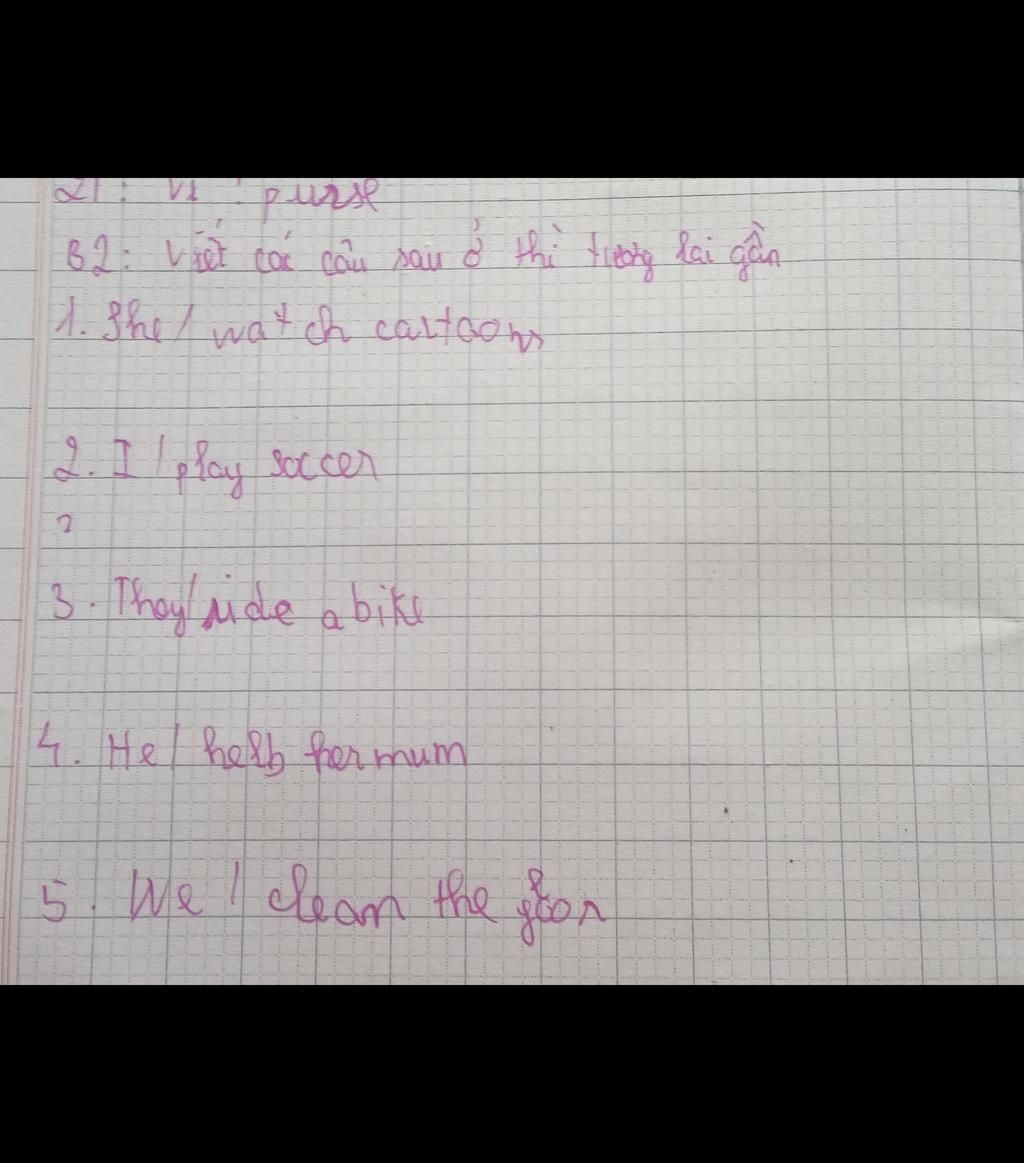 purse
B2: Viết các câu sau ở thì tương lai gần
1. She / watch cartoons
2. I / play soccer
?
3. They / ride a bike
4. He / help her mum
5. We / clean the floor